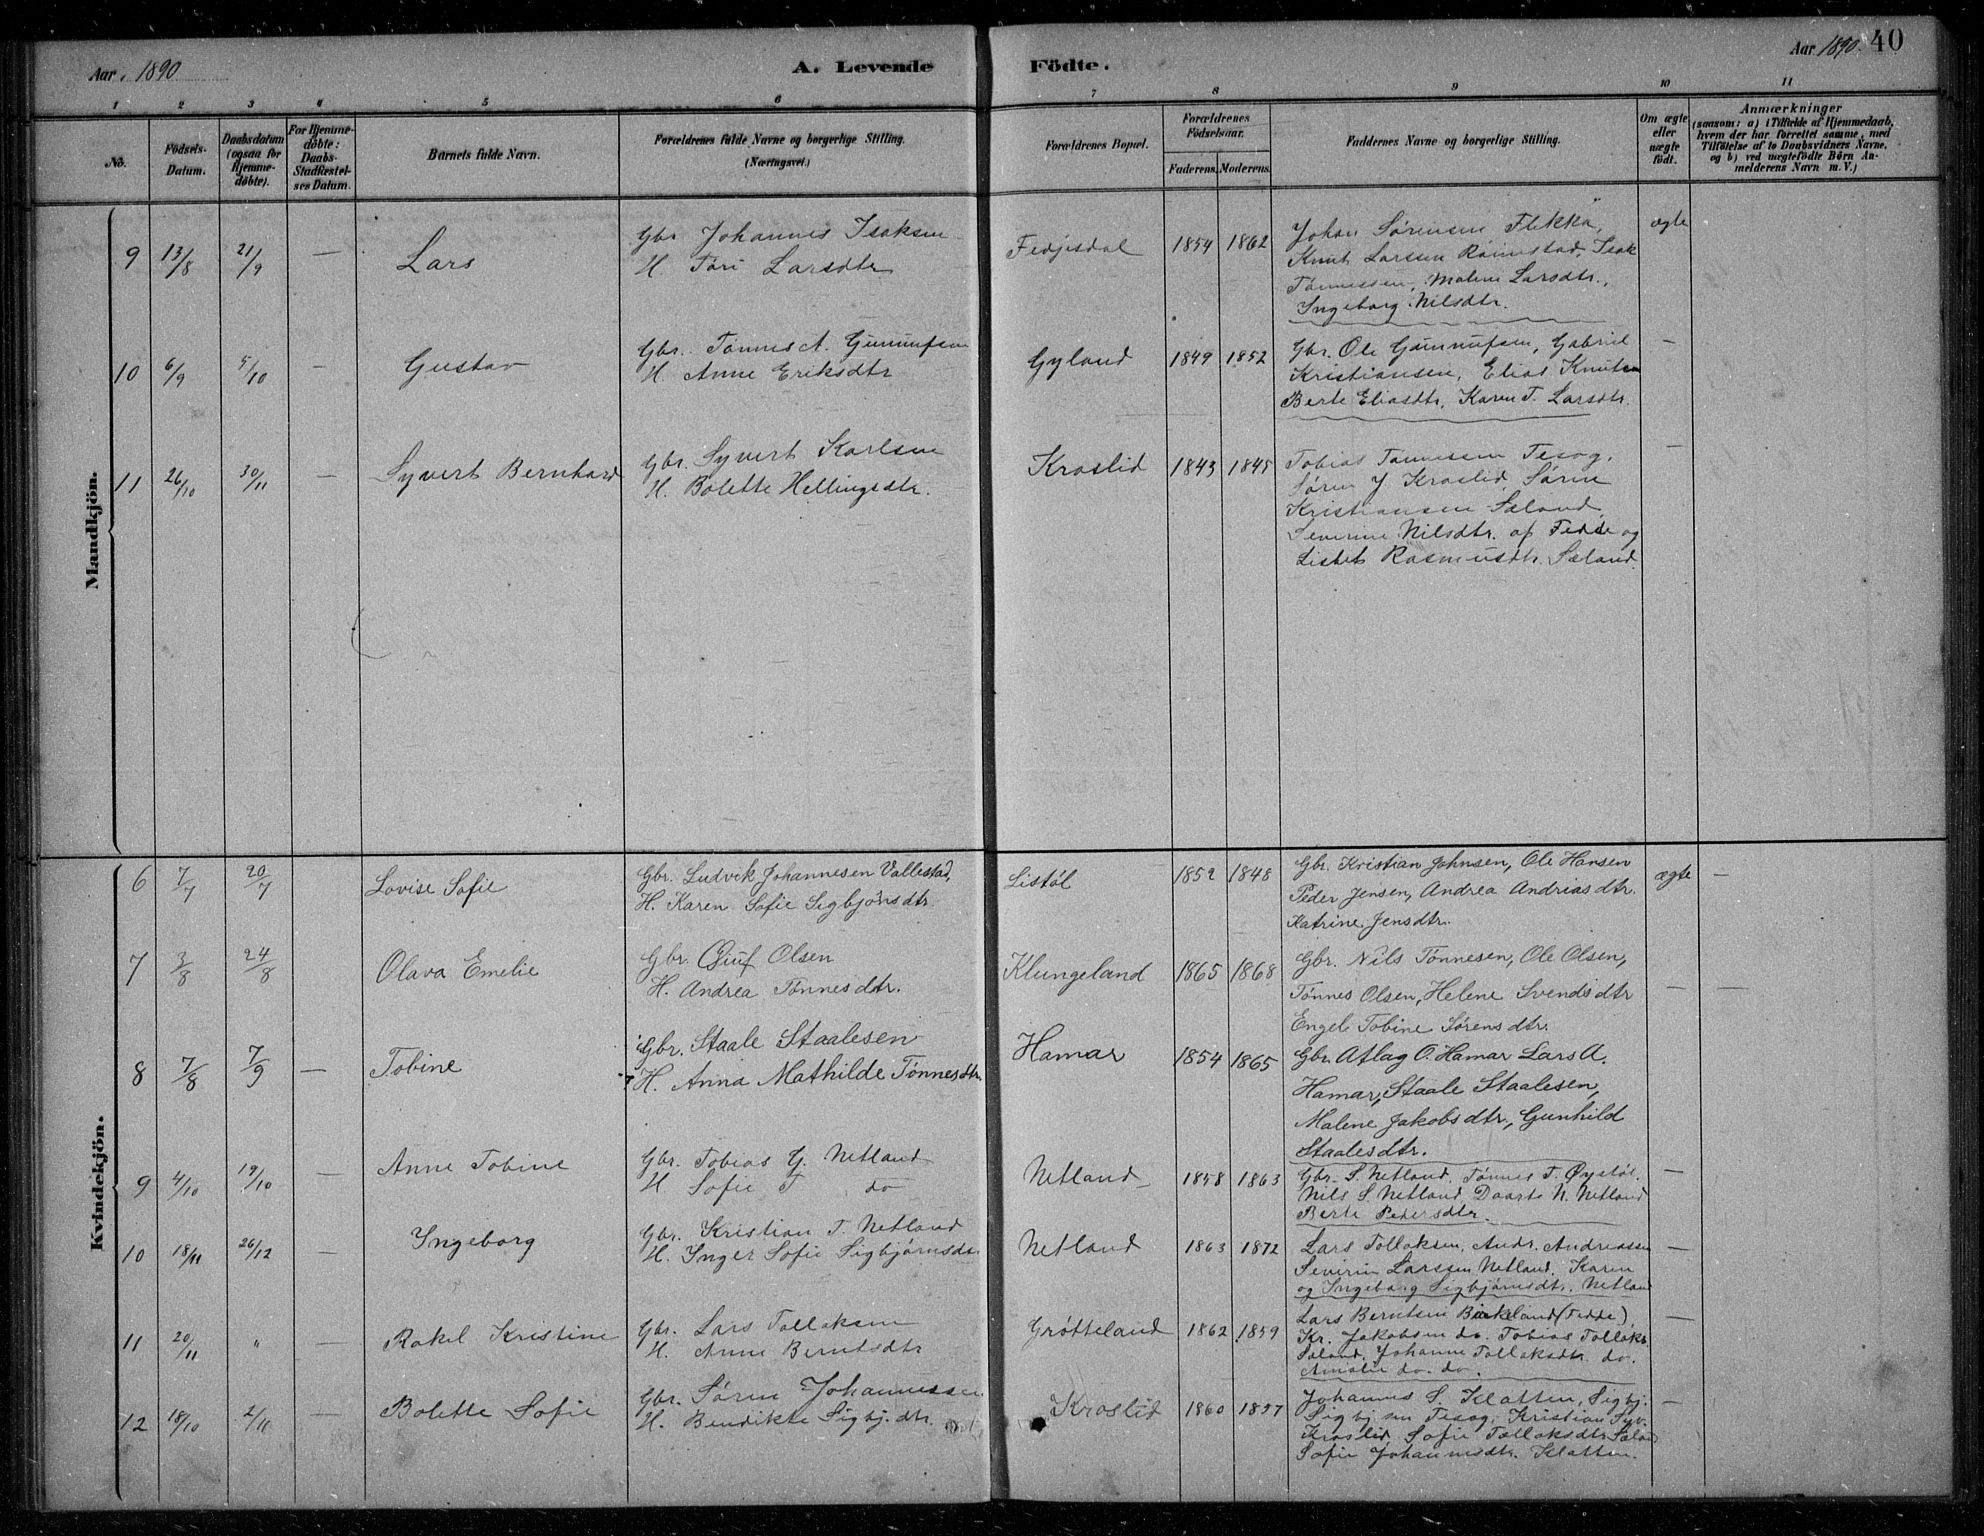 Aar. 1890
A. Levende Födte.
Aar 1890. 40
1 2 3 4 5 6 7 8 9 10 11
No.
Födsels-Datum.
Daabsdatum (ogsaa for Hjemme-döbte).
For Hjemme-döbte: Daabs-Stadfæstel-ses Datum.
Barnets fulde Navn.
Forældrenes fulde Navne og borgerlige Stilling. (Næringsvei.)
Forældrenes Bopæl.
Forældrenes Födselsaar.
Faderens. Moderens.
Faddernes Navne og borgerlige Stilling.
Om ægte eller uægte födt.
Anmærkninger
(saasom: a) i Tilfælde af Hjemmedaab, hvem der har forrettet samme, med Tilföielse af to Daabsvidners Navne, og b) ved uægtefödte Börn An-melderens Navn m. V.)
Mandkjön.
9 13/8 21/9 — Lars
Gbr Johannes Isaksen
H. Tori Larsdtr
Fedjesdal 1854 1862
Johan Sørensen Flikka,
Knut Larssen Røinestad, Isak
Tønnessen, Malene Larsdtr.,
Ingeborg Nilsdtr.
ægte
10 6/9 5/10 — Gustav
Gbr. Tønnes A. Gunnufsen
H. Anne Eriksdtr
Gyland 1849 1852
Gbr. Ole Gunnufsen, Gabriel
Kristiansen, Elias Knutsen
Berte Eliasdtr, Karen T. Larsdtr.
—
11 26/10 30/11 — Syvert Bernhard
Gbr. Syvert Karlsen
H. Bolette Hellingsdtr.
Kroslid 1843 1845
Tobias Tønnesen Tesog,
Søren J Kroslid, Søren
Kristiansen Sæland,
Severine Nilsdtr. af Fedde og
Lisbet Rasmusdtr. Sæland.
—
Kvindekjön.
6 7/7 20/7 Lovise Sofie
Gbr. Ludvik Johannesen Vallestad,
H. Karen Sofie Sigbjörnsdtr
Listöl 1852 1848
Gbr. Kristian Johnsen, Ole Hansen
Peder Jensen, Andrea Andriasdtr.
Katrine Jensdtr.
ægte —
7 3/8 24/8 Olava Emelie
Gbr. Guuf Olsen
H. Andrea Tönnesdtr.
Klungeland 1865 1868
Gbr. Nils Tönnesen, Ole Olsen,
Tönnes Olsen, Helene Svendsdtr
Engel Tobine Sörensdtr.
— —
8 7/8 7/9 — Tobine
Gbr. Staale Staalesen
H. Anna Mathilde Tönnesdtr.
Hamar 1854 1865
Gbr. Atlag O. Hamar Lars A.
Hamar, Staale Staalesen,
Malene Jakobsdtr, Gunhild
Staalesdtr.
9 4/10 19/10 — Anne Tobine
Gbr. Tobias G. Netland
H Sofie T do
Netland 1858 1863
Gbr. S. Netland, Tønnes T. Øystøl.
Nils S. Netland, Daarte N. Netland
Berte Pedersdtr.
—
10 18/11 26/12 — Ingeborg
Gbr. Kristian T. Netland
H. Inger Sofie Sigbjørnsdr
Netland 1863 1872
Lars Tollaksen, Andr. Andreassen
Severin Larssen Netland, Karen
og Ingeborg Sigbjørnsdtr. Netland
—
11 20/11 " — Rakel Kristine
Gbr. Lars Tollaksen
H. Anne Berntsdtr
Grøtteland 1862 1859
Lars Berntsen Birkeland (Fedde),
Kr. Jakobsen do. Tobias Tollaks.
Sæland, Johanne Tollaksdtr. do.
Amalie do. do.
—
12 18/10 2/11 — Bolette Sofie
Gbr. Søren Johannessen
H. Bendikte Sigbj.dtr.
Kroslid 1860 1857
Johannes S. Klatten, Sigbj.
Sigbj.sen Tesog, Kristian Syv.
Kroslid, Sofie Tollaksdtr Sæland
Sofie Johannesdtr. Klatten.
—